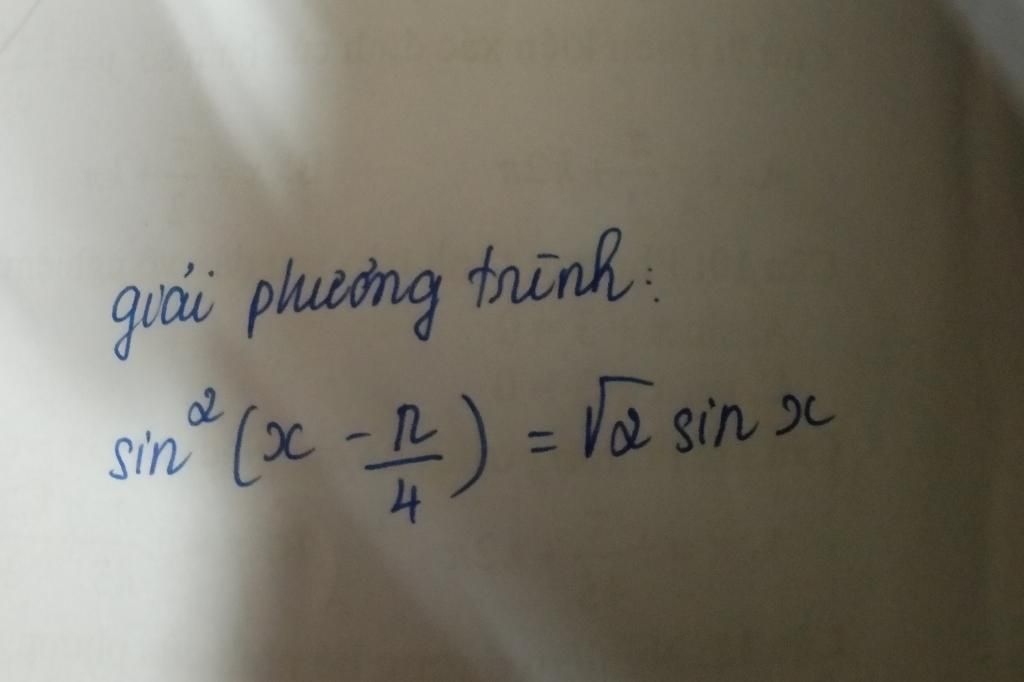 giải phương trình:
sin²(x - π/4) = √2 sin x